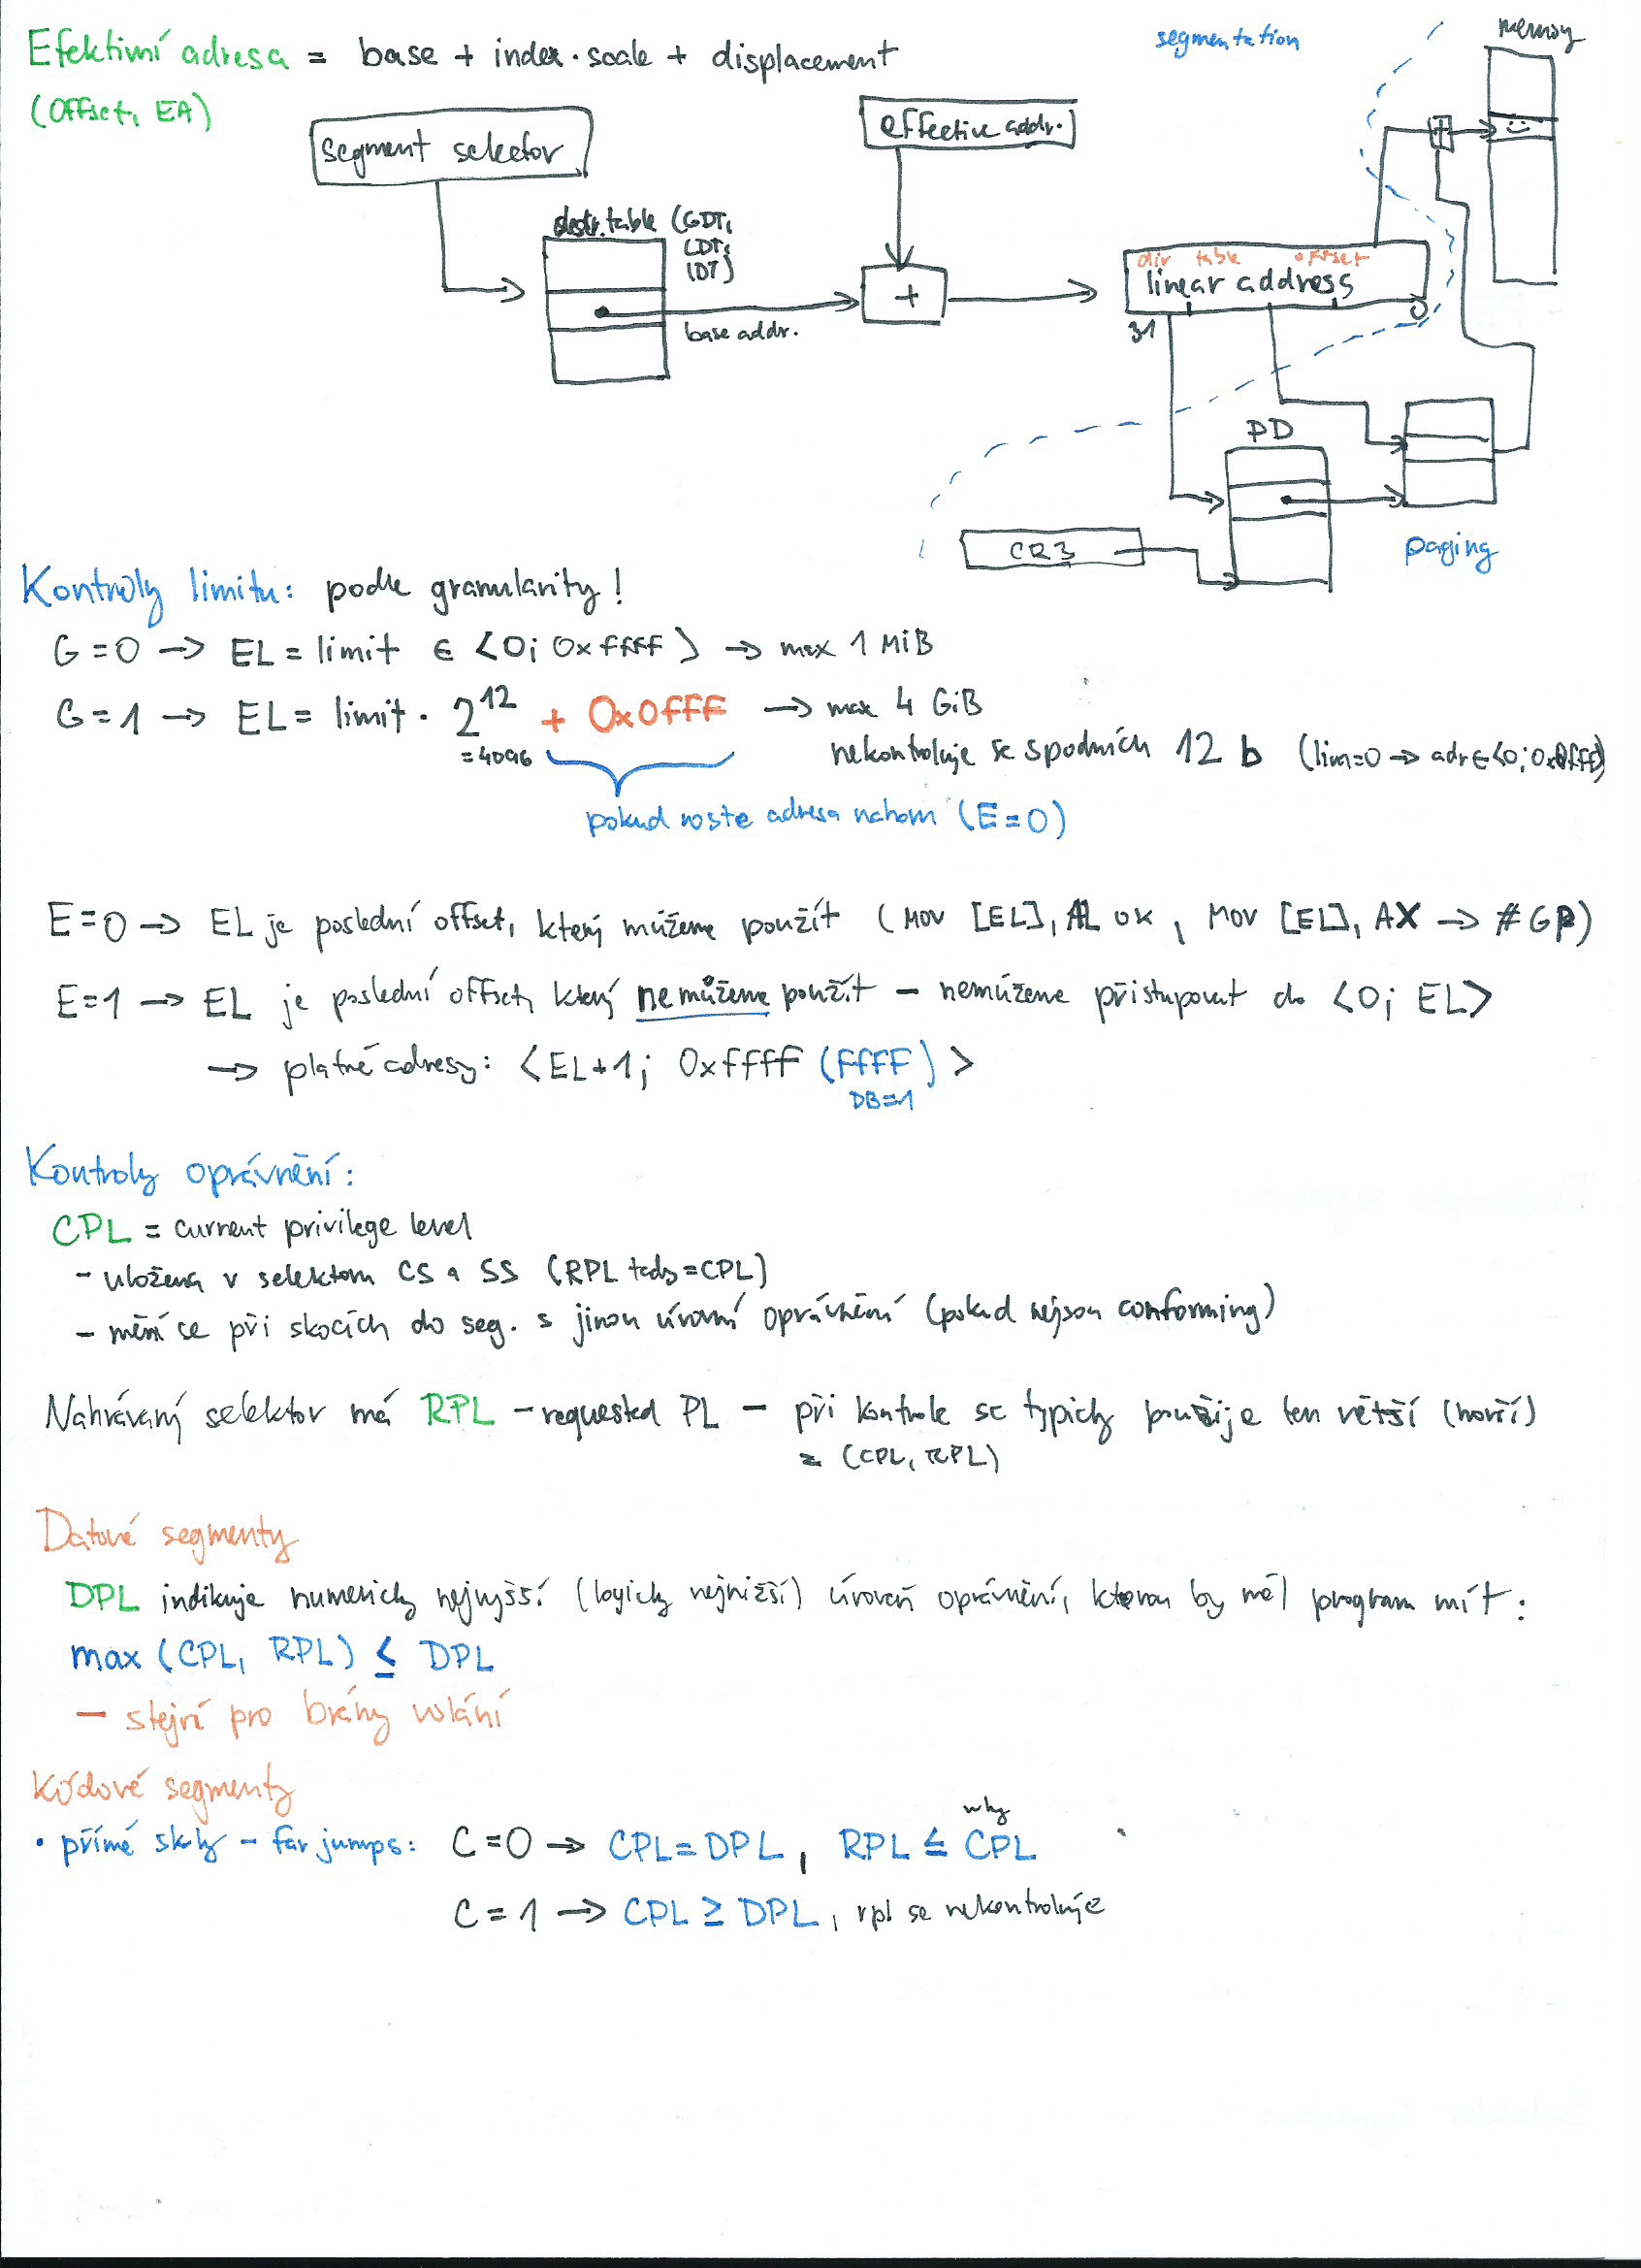 Efektivní adresa = base + index · scale + displacement
(Offset, EA)
segmentation
memory
segment selector
effective addr.
descr. table (GDT,
LDT,
IDT)
base addr.
+
+
dir table offset
linear address
31 0
PD
CR3
paging
Kontroly limitu: podle granularity!
G=0 → EL = limit ∈ <0; 0xffff> → max 1 MiB
G=1 → EL = limit · 2^12 + 0x0fff → max 4 GiB
=4096
nekontroluje se spodních 12 b (lim=0 → adr ∈ <0; 0x0fff>)
pokud roste adresa nahoru (E=0)
E=0 → EL je poslední offset, který můžeme použít (MOV [EL], AL OK, MOV [EL], AX → #GP)
E=1 → EL je poslední offset, který nemůžeme použít – nemůžeme přistupovat do <0; EL>
→ platné adresy: <EL+1; 0xffff (ffff)>
DB=1
Kontroly oprávnění:
CPL = current privilege level
- uložena v selektoru CS a SS (RPL tady = CPL)
- mění se při skocích do seg. s jinou úrovní oprávnění (pokud nejsou conforming)
Nahrávaný selektor má RPL – requested PL – při kontrole se typicky použije ten větší (horší)
z (CPL, RPL)
Datové segmenty
DPL indikuje numericky nejvyšší (logicky nejnižší) úroveň oprávnění, kterou by měl program mít:
max (CPL, RPL) ≤ DPL
– stejné pro brány volání
Kódové segmenty
• přímé skoky – far jumps: C=0 → CPL = DPL, RPL ≤ CPL
why
C=1 → CPL ≥ DPL, rpl se nekontroluje